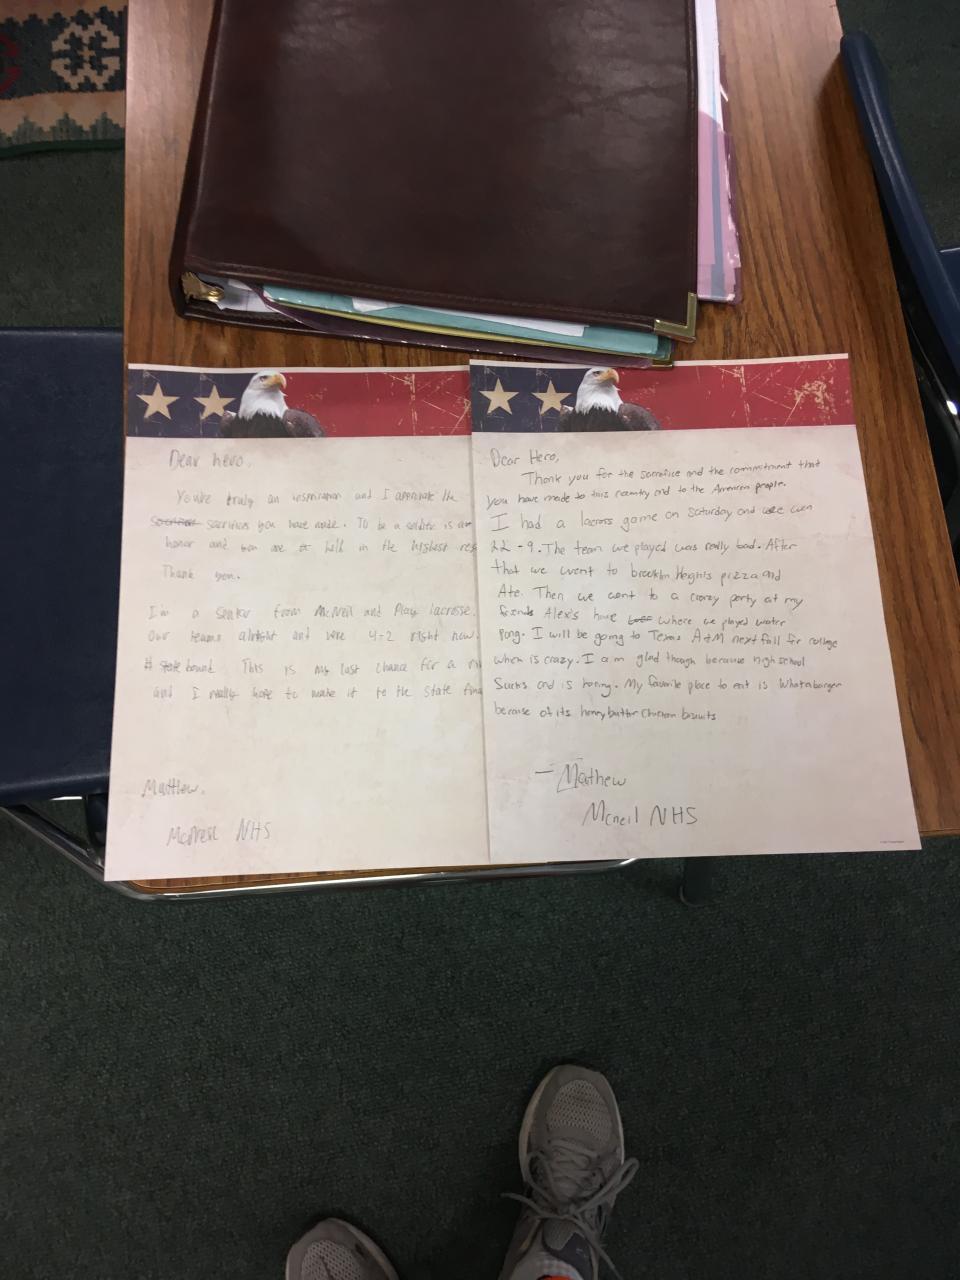 Dear hero,
You're truly an inspiration and I appreciate the
sacrifices you have made. To be a soldier is an
honor and you are held in the highest
Thank you.
I'm a senior from McNeil and Play lacrosse.
Our teams alright and were 4-2 right now.
# state bound. This is my last chance for a
and I really hope to make it to the state
Matthew,
McNeil NHS
Dear Hero,
Thank you for the sacrifice and the commitment that
you have made to this country and to the American people.
I had a lacross game on Saturday and we won
22-9. The team we played was really bad. After
that we went to brooklin Heights pizza and
Ate. Then we went to a crazy party at my
friends Alex's house where we played water
Pong. I will be going to Texas A+M next fall for college
when is crazy. I am glad though because high school
Sucks and is boring. My favorite place to eat is Whataburger
because of its honey butter chicken biscuits
- Mathew
Mcneil NHS